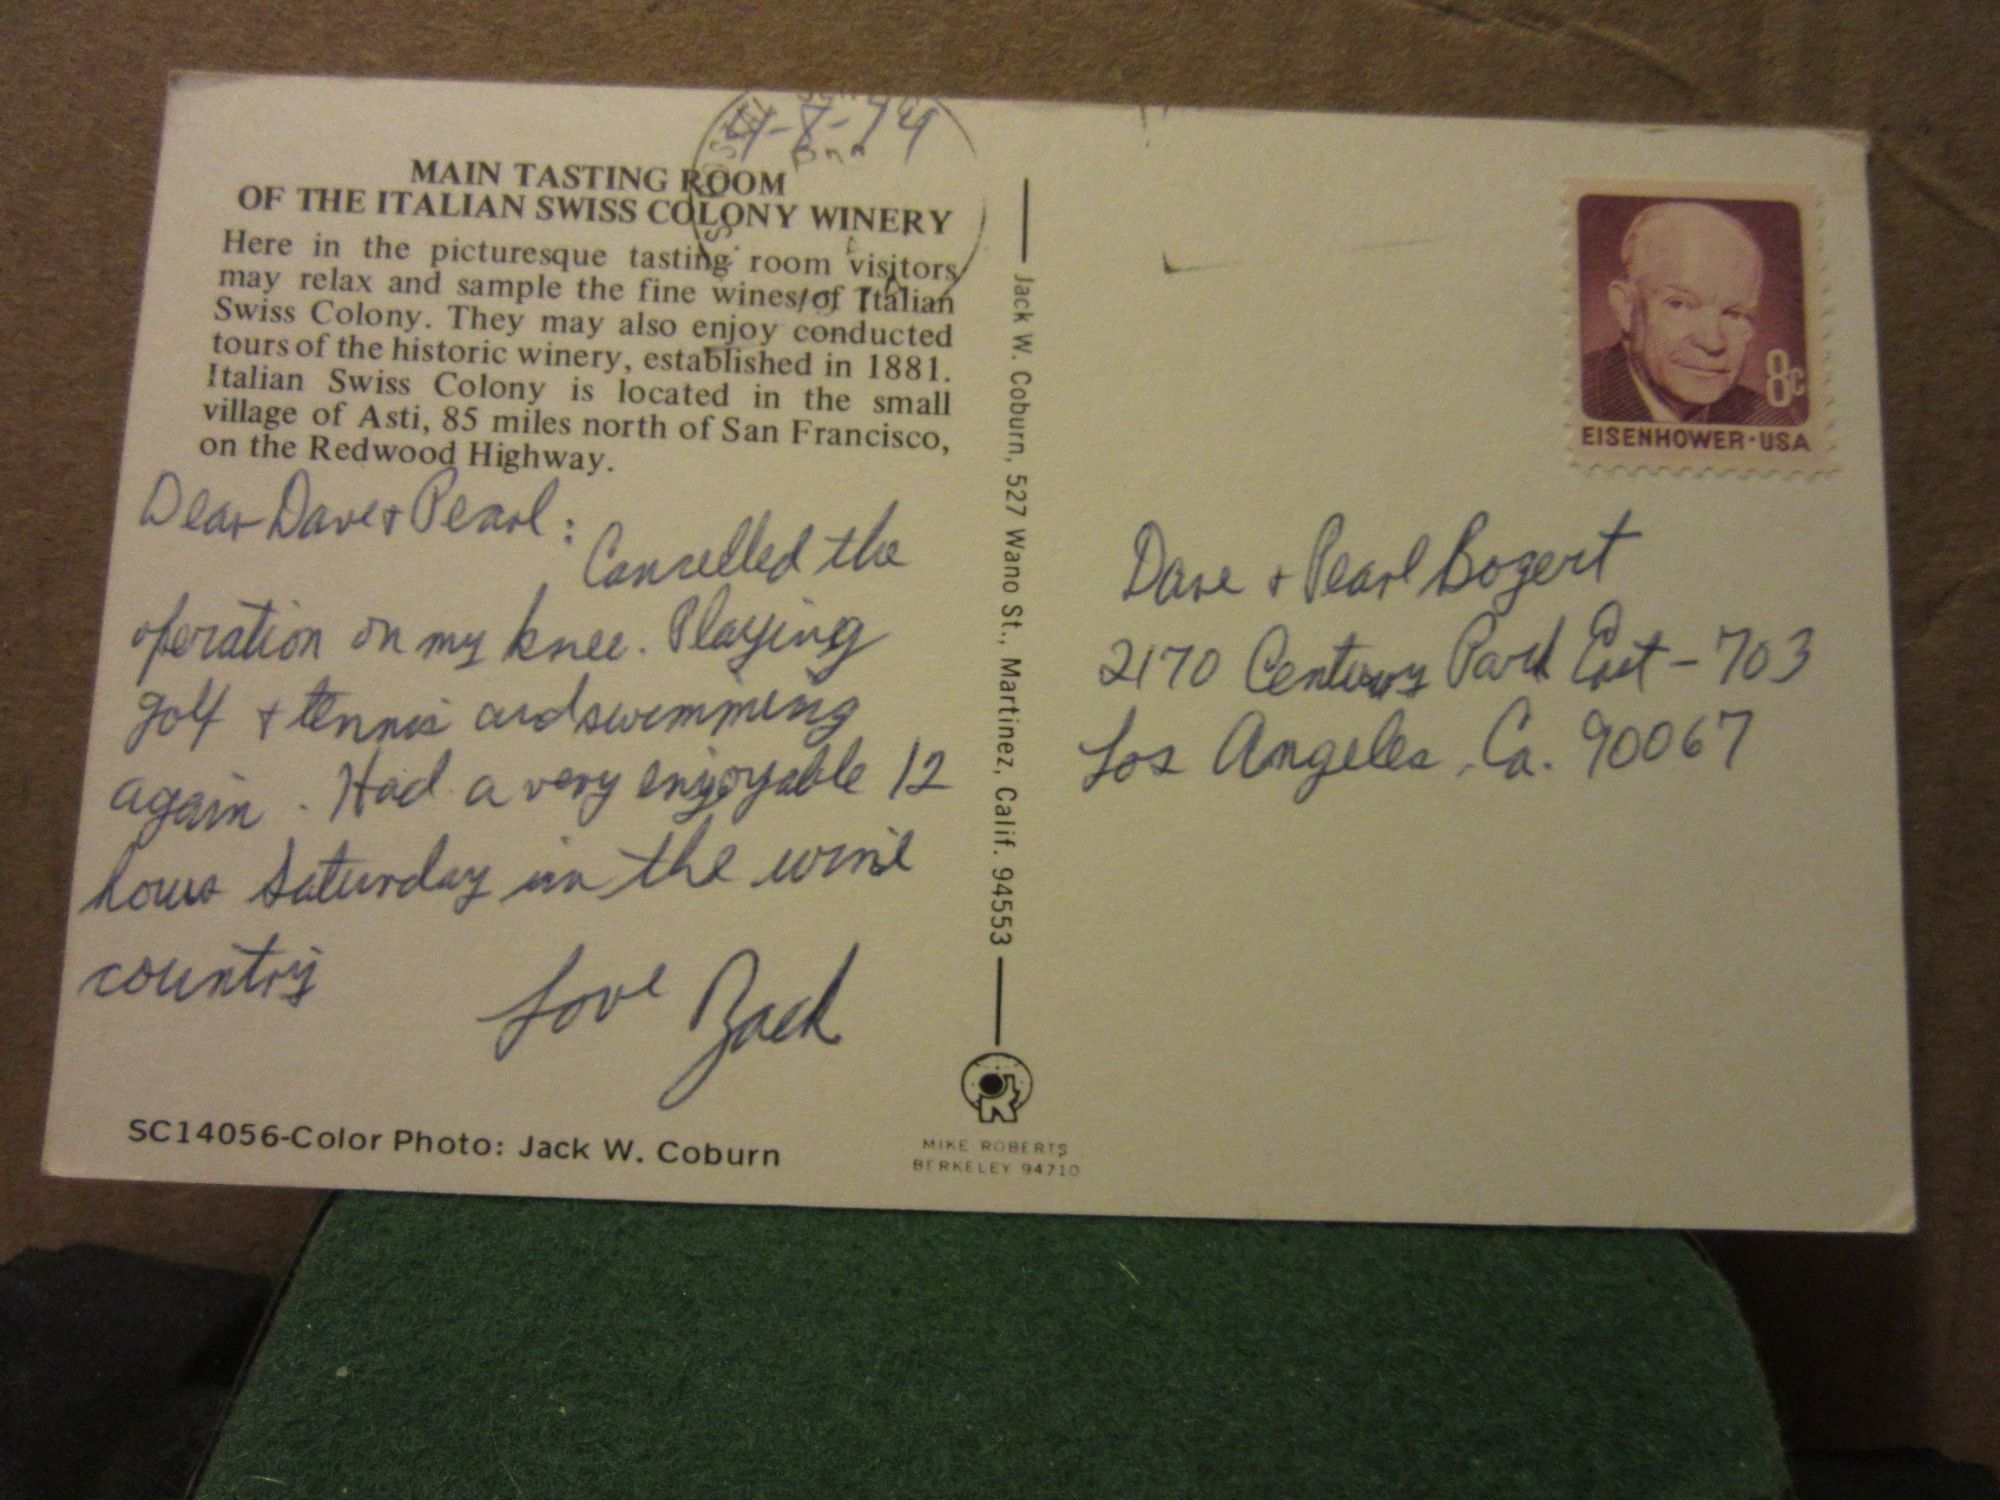 4-7-74
MAIN TASTING ROOM
OF THE ITALIAN SWISS COLONY WINERY
Here in the picturesque tasting room visitors
may relax and sample the fine wines of Italian
Swiss Colony. They may also enjoy conducted
tours of the historic winery, established in 1881.
Italian Swiss Colony is located in the small
village of Asti, 85 miles north of San Francisco,
on the Redwood Highway.
Dear Dave + Pearl:
Cancelled the
operation on my knee. Playing
golf + tennis and swimming
again. Had a very enjoyable 12
hours Saturday in the wine
country
Love Zack
SC14056-Color Photo: Jack W. Coburn
Jack W. Coburn, 527 Wano St., Martinez, Calif. 94553
MIKE ROBERTS
BERKELEY 94710
8c
EISENHOWER·USA
Dave + Pearl Bogert
2170 Century Park East - 703
Los Angeles, Ca. 90067